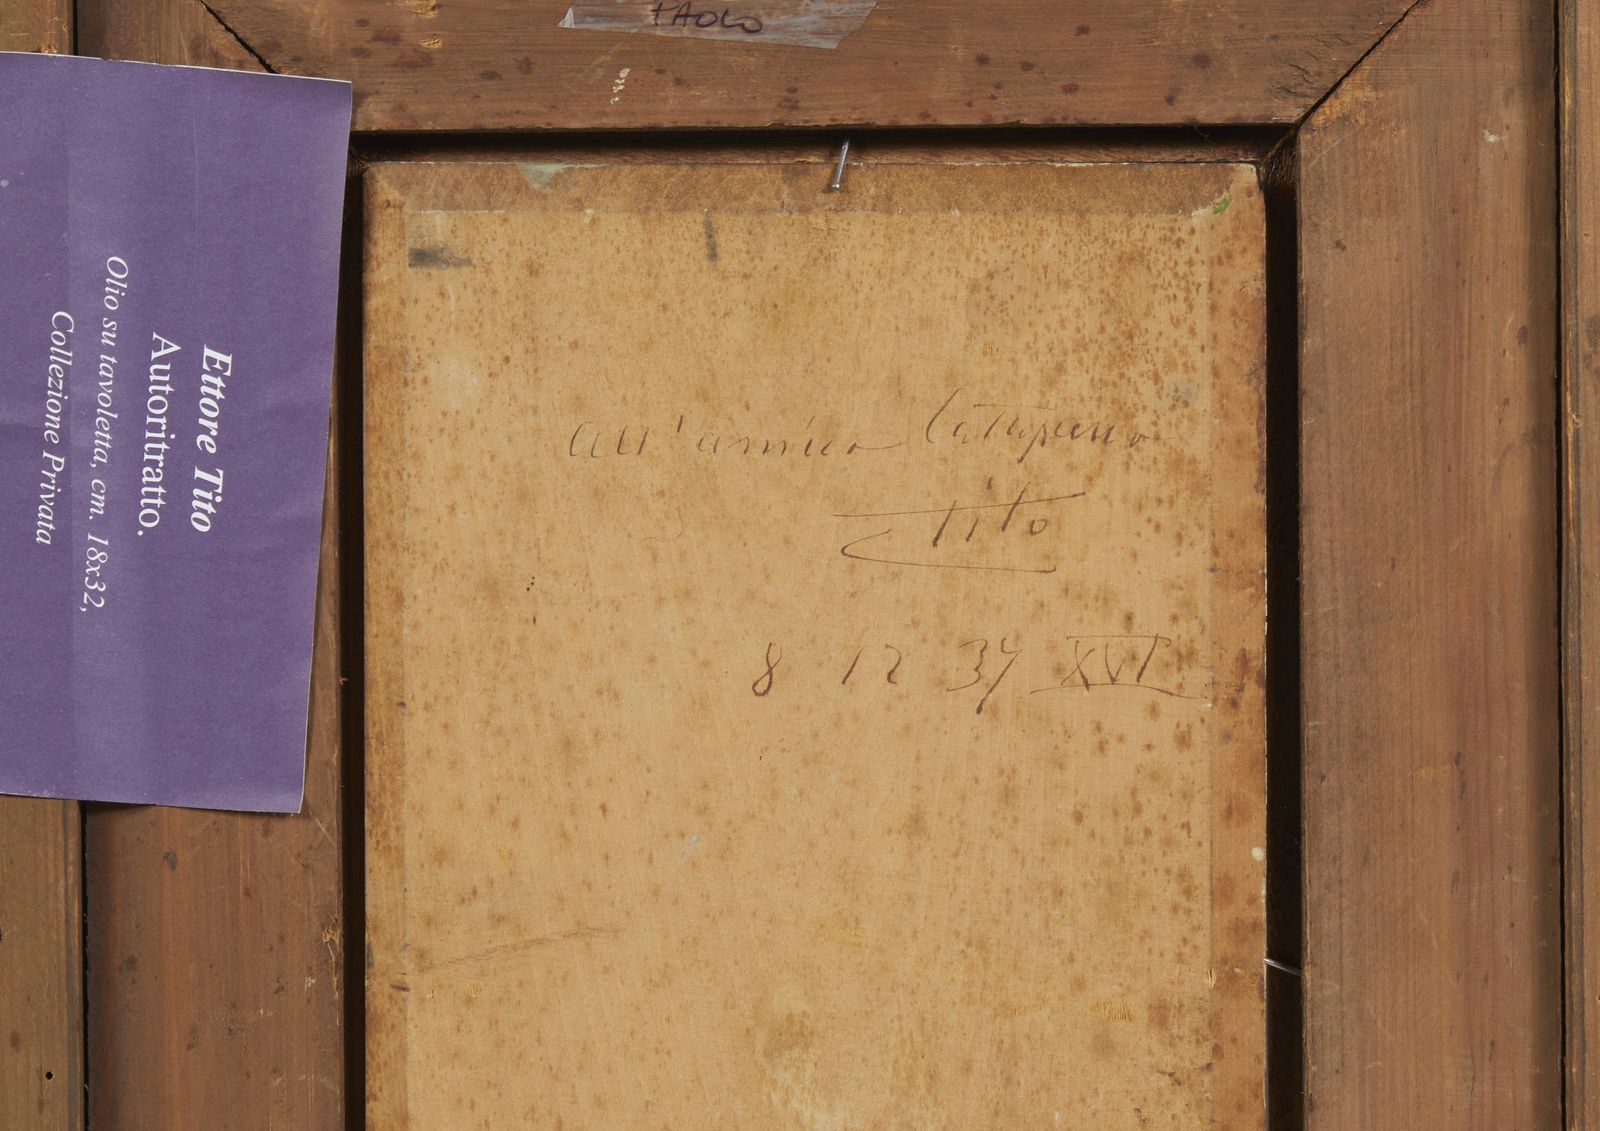 PAOLO
Ettore Tito
Autoritratto.
Olio su tavoletta, cm. 18x32,
Collezione Privata
all'amico
Tito
8 12 37 XVI